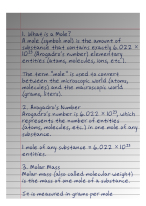 1. What is a Mole?
A mole (symbol mol) is the amount of
substance that contains exactly 6.022 ×
10²³ (Avogadro's number) elementary
entities (atoms, molecules, ions, etc.).
The term "mole" is used to convert
between the microscopic world (atoms,
molecules) and the macroscopic world
(grams, liters).
2. Avogadro's Number
Avogadro's number is 6.022 × 10²³, which
represents the number of entities
(atoms, molecules, etc.) in one mole of any
substance.
1 mole of any substance = 6.022 × 10²³
entities.
3. Molar Mass
Molar mass (also called molecular weight)
is the mass of one mole of a substance.
It is measured in grams per mole